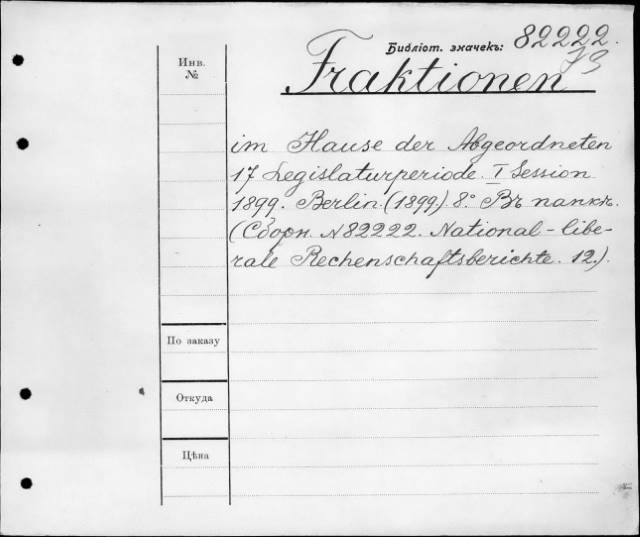 Библіот. значекъ: 82222.
Инв.
№
Fraktionen
im Hause der Abgeordneten
17 Legislaturperiode. I Session
1899. Berlin. (1899.) 8°. Въ папкѣ.
(Сборн. №82222. National-libe-
rale Rechenschaftsberichte. 12.).
По заказу
Откуда
Цѣна